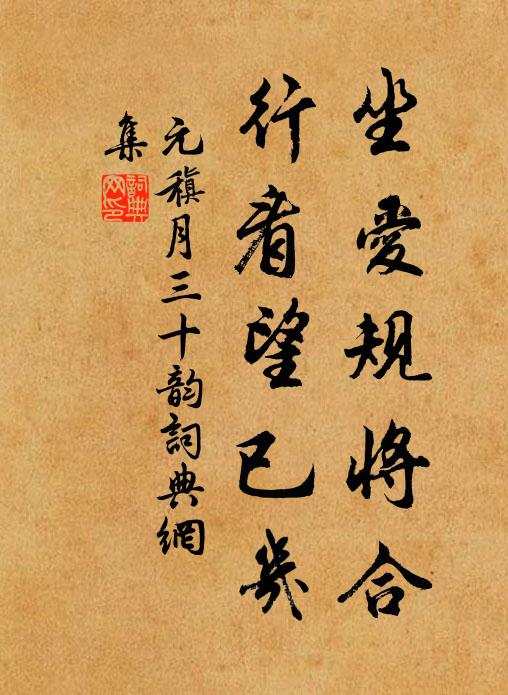 坐愛規將合
行看望已幾
元稹月三十韵詞典網
集
詞典网印